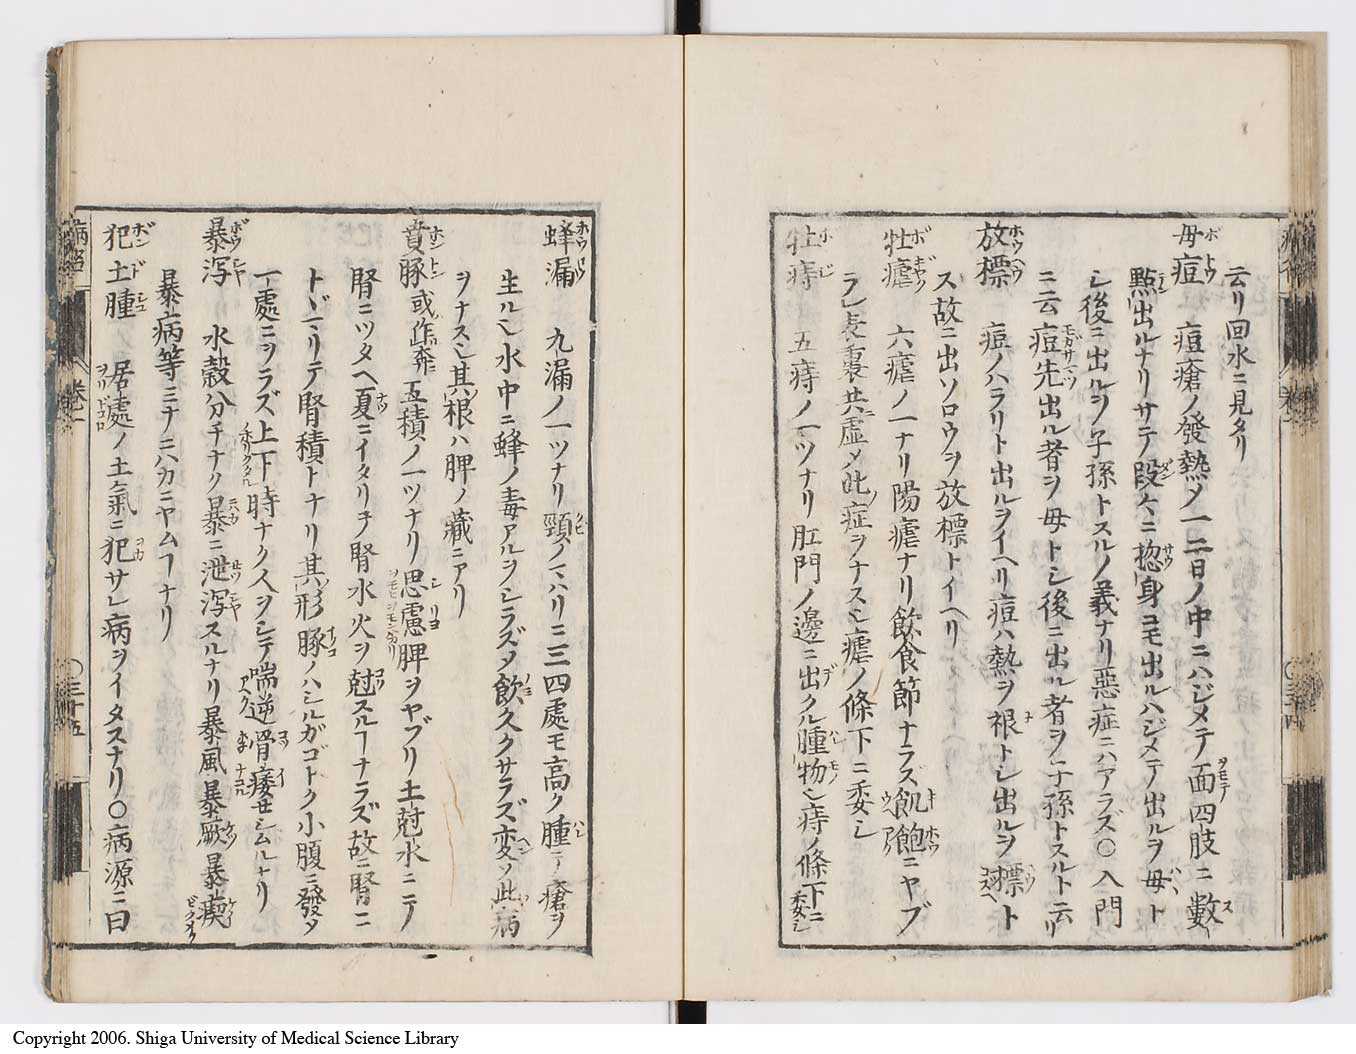 云リ回水ニ見タリ
母痘 痘瘡ノ發熱ノ一二日ノ中ニハジメテ面四肢ニ數
點出ルナリサテ段々ニ惣身ヱモ出ルハジメテ出ルヲ母ト
シ後ニ出ルヲ子孫トスルノ義ナリ惡症ニハアラズ〇入門
ニ云痘先出ル者ヲ母トシ後ニ出ル者ヲ子孫トスルト云リ
放標 痘ノハラリト出ルヲイヘリ痘ハ熱ヲ根トシ出ルヲ標ト
ス故ニ出ソロウヲ放標トイヘリ
牡瘧 六瘧ノ一ナリ陽瘧ナリ飲食節ナラス飢飽ニヤブ
ラレ表裏共虚メ此症ヲナスヿ瘧ノ條下ニ委シ
牡痔 五痔ノ一ツナリ肛門ノ邊ニ出クル腫物ヿ痔ノ條下ニ委シ
蜂漏 九漏ノ一ツナリ頸ノマハリ三四處モ高ク腫テ瘡ヲ
生ルヿ水中ニ蜂ノ毒アルヲシラズメ飲久クサラズ変メ此病
ヲナスヿ其根ハ脾ノ藏ニアリ
賁豚 或作奔 五積ノ一ツナリ思慮脾ヲヤブリ土尅水ニテ
腎ニツタヘ夏ニイタリテ腎水火ヲ尅スルヿナラズ故ニ腎ニ
トヾマリテ腎積トナリ其形豚ノハシルガゴトク小腹ニ發メ
一處ニヲラズ上下時ナク人ヲシテ喘逆骨痿セシムルナリ
暴瀉 水穀分チナク暴ニ泄瀉スルナリ暴風暴厥暴瘈
暴病等ミナニハカニヤムヿナリ
犯土腫 居處ノ土氣ニ犯サレ病ヲイタスナリ〇病源ニ曰
卷一
〇三十五
Copyright 2006. Shiga University of Medical Science Library